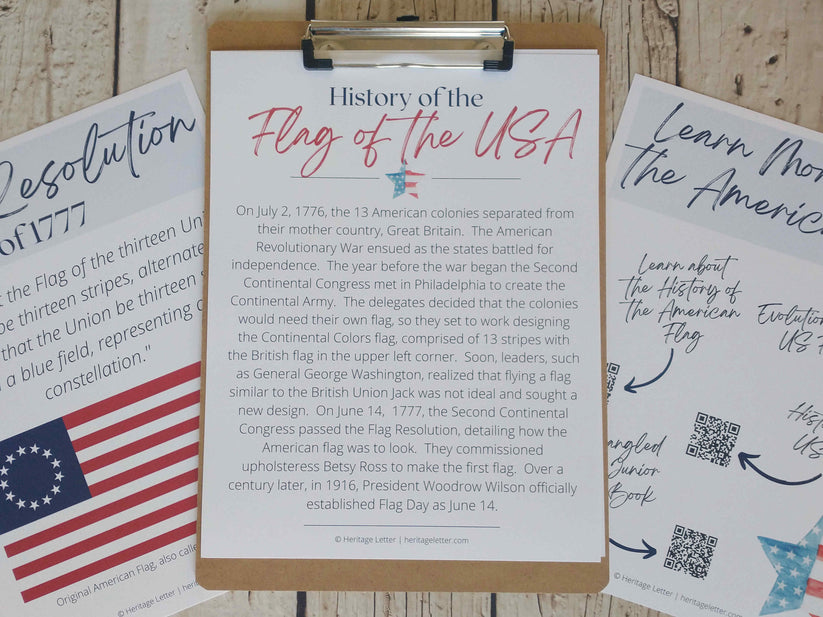 Resolution
of 1777
the Flag of the thirteen
be thirteen stripes, alternate
that the Union be thirteen
a blue field, representing
constellation."
Original American Flag, also
© Heritage Letter |
History of the
Flag of the USA
On July 2, 1776, the 13 American colonies separated from
their mother country, Great Britain. The American
Revolutionary War ensued as the states battled for
independence. The year before the war began the Second
Continental Congress met in Philadelphia to create the
Continental Army. The delegates decided that the colonies
would need their own flag, so they set to work designing
the Continental Colors flag, comprised of 13 stripes with
the British flag in the upper left corner. Soon, leaders, such
as General George Washington, realized that flying a flag
similar to the British Union Jack was not ideal and sought a
new design. On June 14, 1777, the Second Continental
Congress passed the Flag Resolution, detailing how the
American flag was to look. They commissioned
upholsteress Betsy Ross to make the first flag. Over a
century later, in 1916, President Woodrow Wilson officially
established Flag Day as June 14.
© Heritage Letter | heritageletter.com
Learn
the
Learn about
the History of
the American
Flag
US
Junior
Book
© Heritage Letter | heritageletter.com